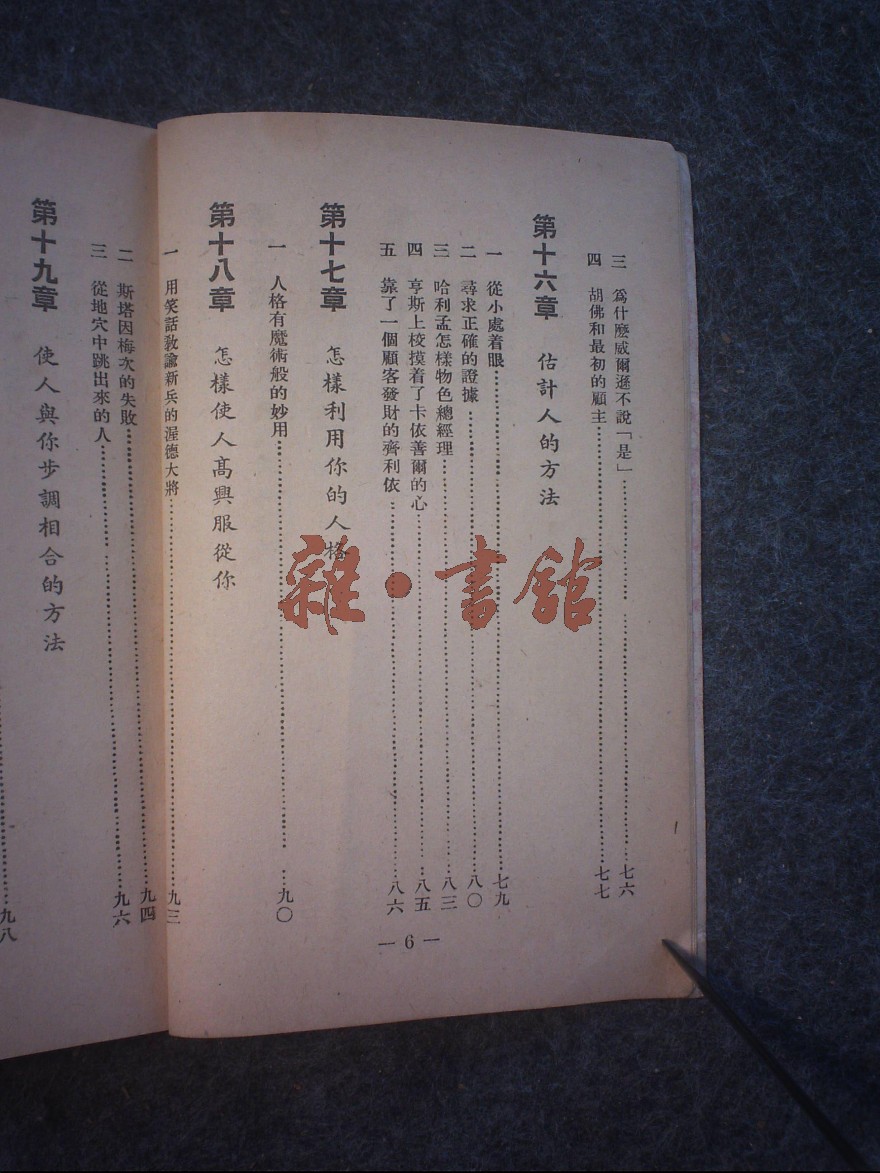 三　爲什麼威爾遜不說「是」……七六
四　胡佛和最初的顧主……七七
第十六章　估計人的方法
一　從小處着眼……七九
二　尋求正確的證據……八〇
三　哈利孟怎樣物色總經理……八三
四　亨斯上校摸着了卡依善爾的心……八五
五　靠了一個顧客發財的齊利依……八六
第十七章　怎樣利用你的人格
一　人格有魔術般的妙用……九〇
第十八章　怎樣使人高興服從你
一　用笑話教諭新兵的渥德大將……九三
— 6 —
二　斯塔因梅次的失敗……九四
三　從地穴中跳出來的人……九六
第十九章　使人與你步調相合的方法
……九八
雜·書館